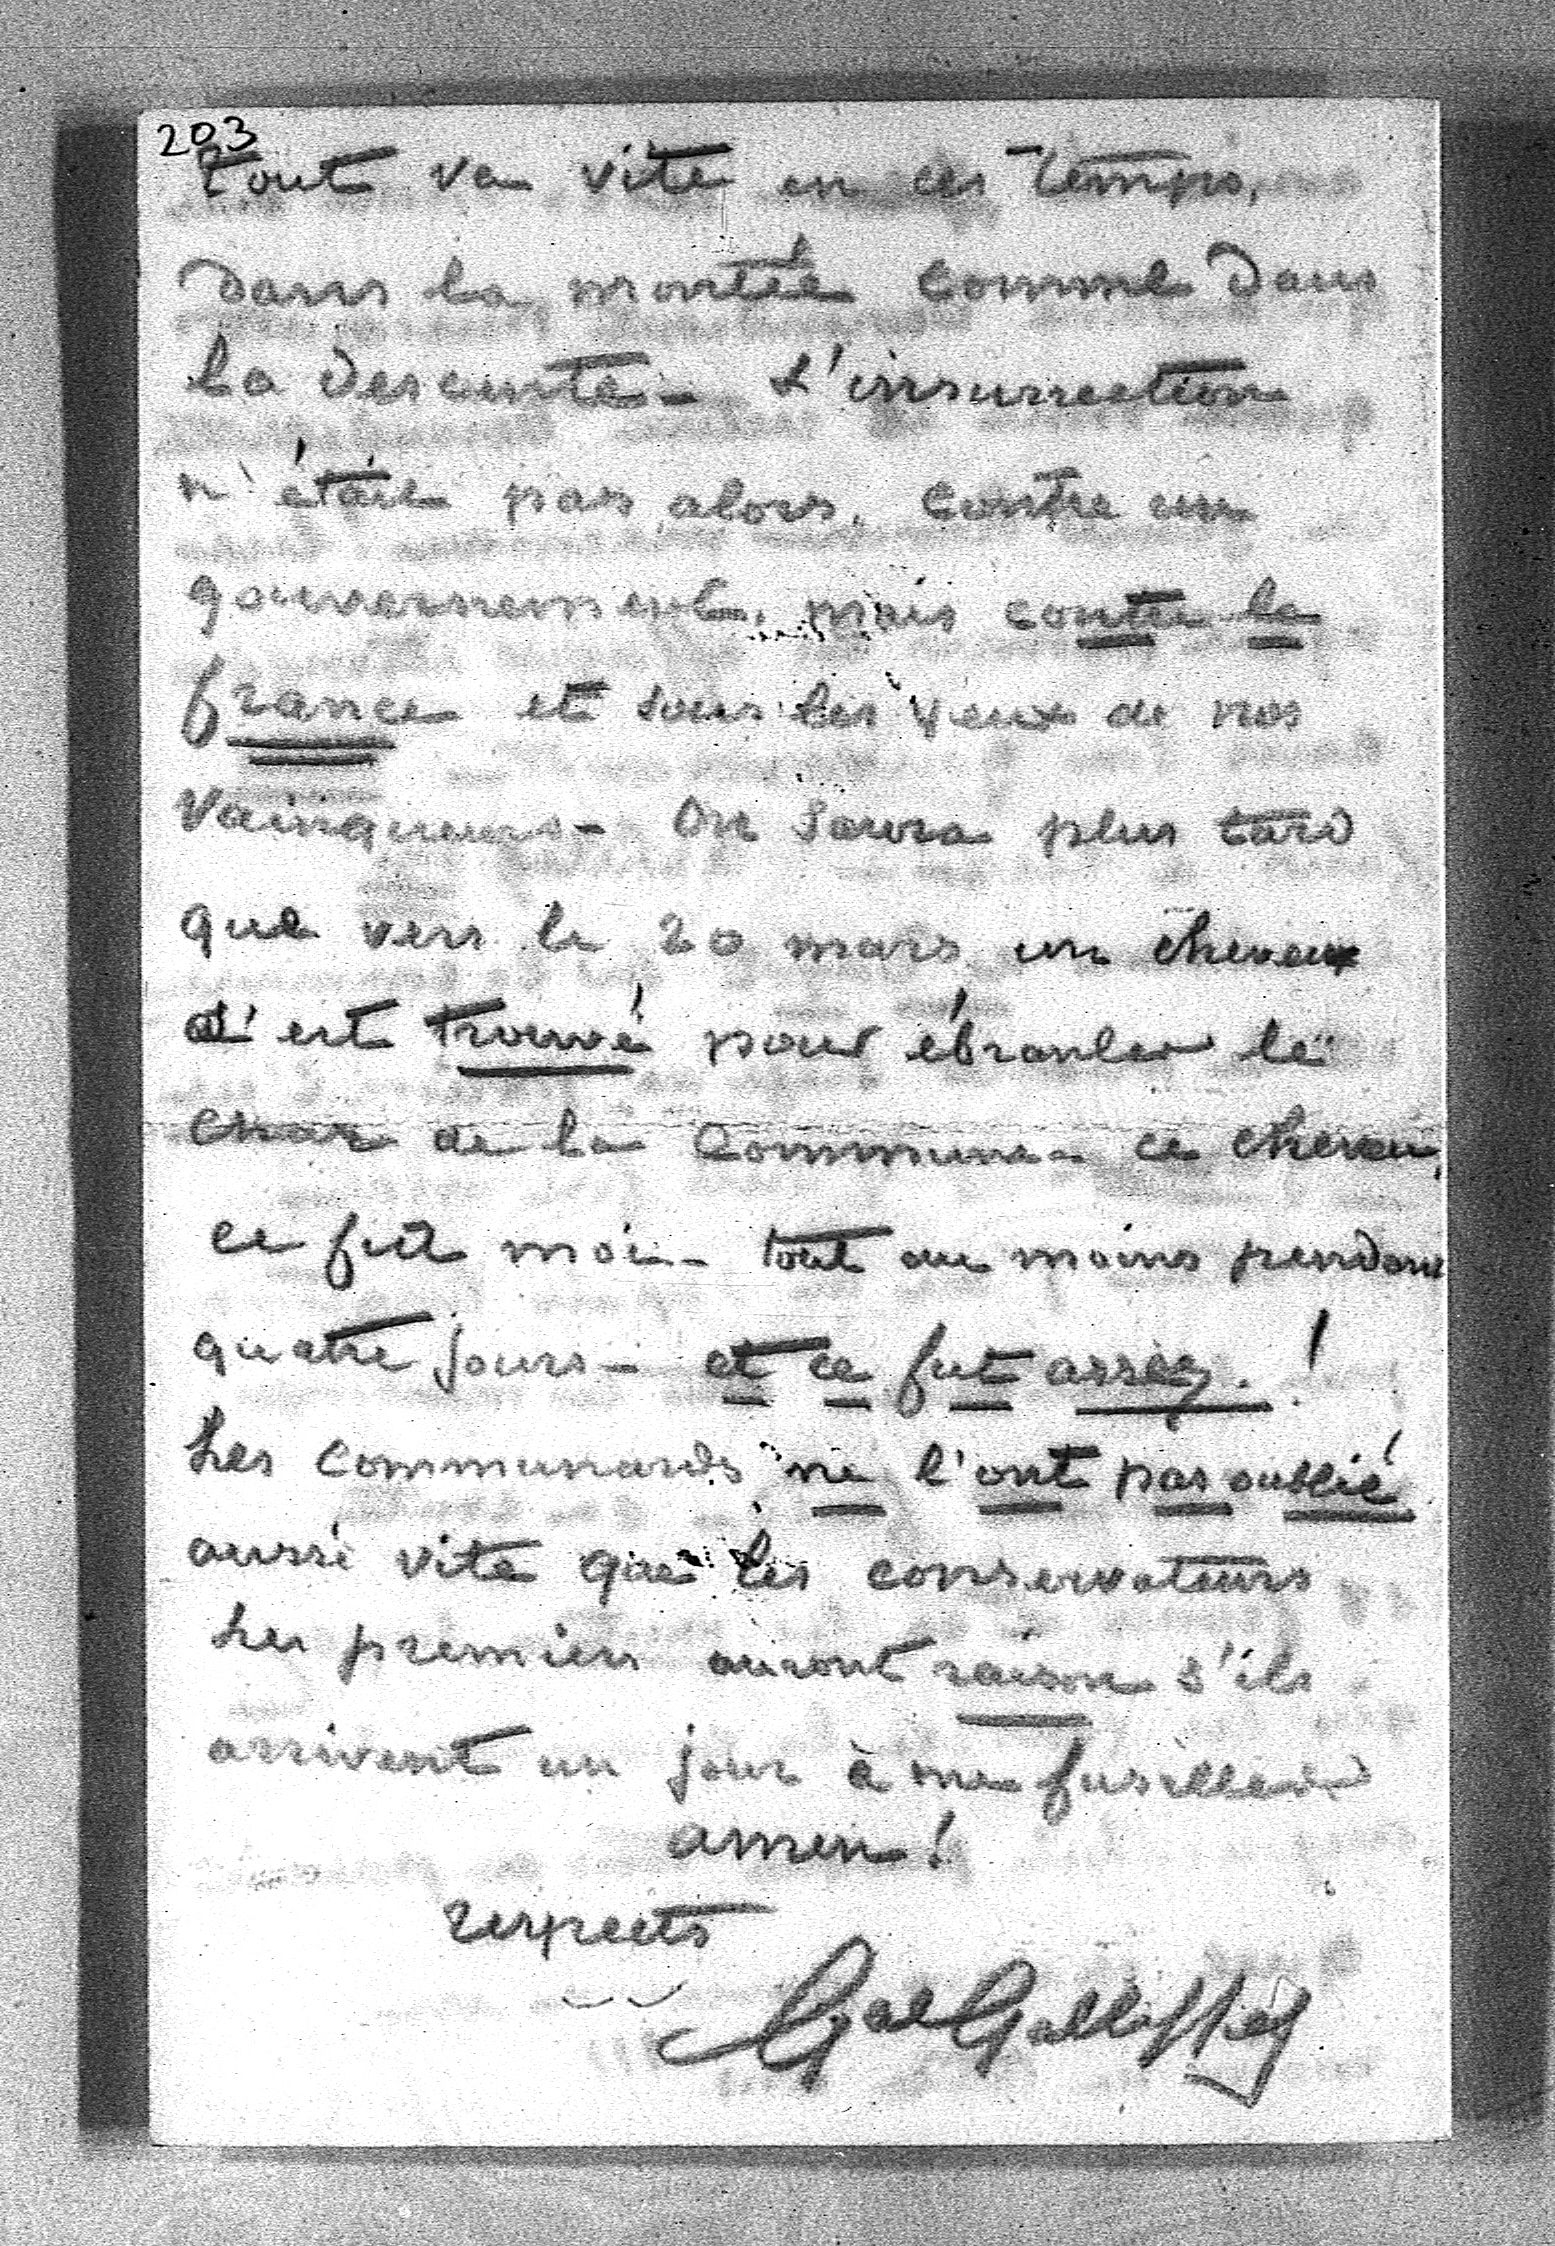 203
tout va vite en ces temps,
dans la montée comme dans
la descente - L'insurrection
n'était pas, alors, contre un
gouvernement, mais contre la
france et sous les yeux de nos
vainqueurs - On saura plus tard
que vers le 20 mars un cheveu
s'est trouvé pour ébranler le
char de la Commune - ce cheveu,
ce fut moi - tout au moins pendant
quatre jours - et ce fut assez !
Les communards ne l'ont pas oublié
aussi vite que les conservateurs
Les premiers auront raison s'ils
arrivent un jour à me fusiller
amen !
respects
Gal Galliffet